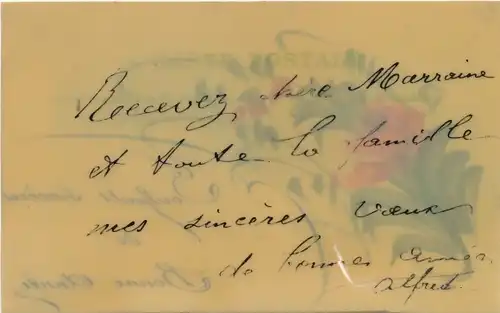 Recevez, chère Marraine
et toute la famille
mes sincères vœux
de bonne année
Alfred